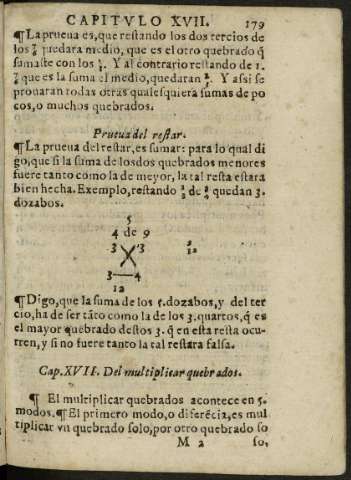 CAPITVLO XVII. 179
¶La prueua es, que restando los dos tercios de
los 7/6 quedara medio, que es el otro quebrado q̃
sumaste con los 2/3. Y al contrario restando de 1.
1/6 que es la suma el medio, quedaran 2/3. Y assi se
prouaran todas otras qualesquiera sumas de po
cos, o muchos quebrados.
Prueua del restar.
¶La prueua del restar, es sumar: para lo qual di
go, que si la suma de los dos quebrados menores
fuere tanto como la de mayor, la tal resta estara
bien hecha. Exemplo, restando 1/3 de 3/4 quedan 5.
dozabos.
5
4 de 9
3 3 5/12
3—4
12
¶Digo, que la suma de los 5. dozabos, y del ter
cio, ha de ser tãto como la de los 3. quartos, q̃ es
el mayor quebrado destos 3. q̃ en esta resta ocu-
rren, y si no fuere tanto la tal restara falsa.
Cap. XVII. Del multiplicar quebrados.
¶ El multiplicar quebrados acontece en 5.
modos. ¶El primero modo, o diferẽcia, es mul
tiplicar vn quebrado solo, por otro quebrado so
M 2 lo,